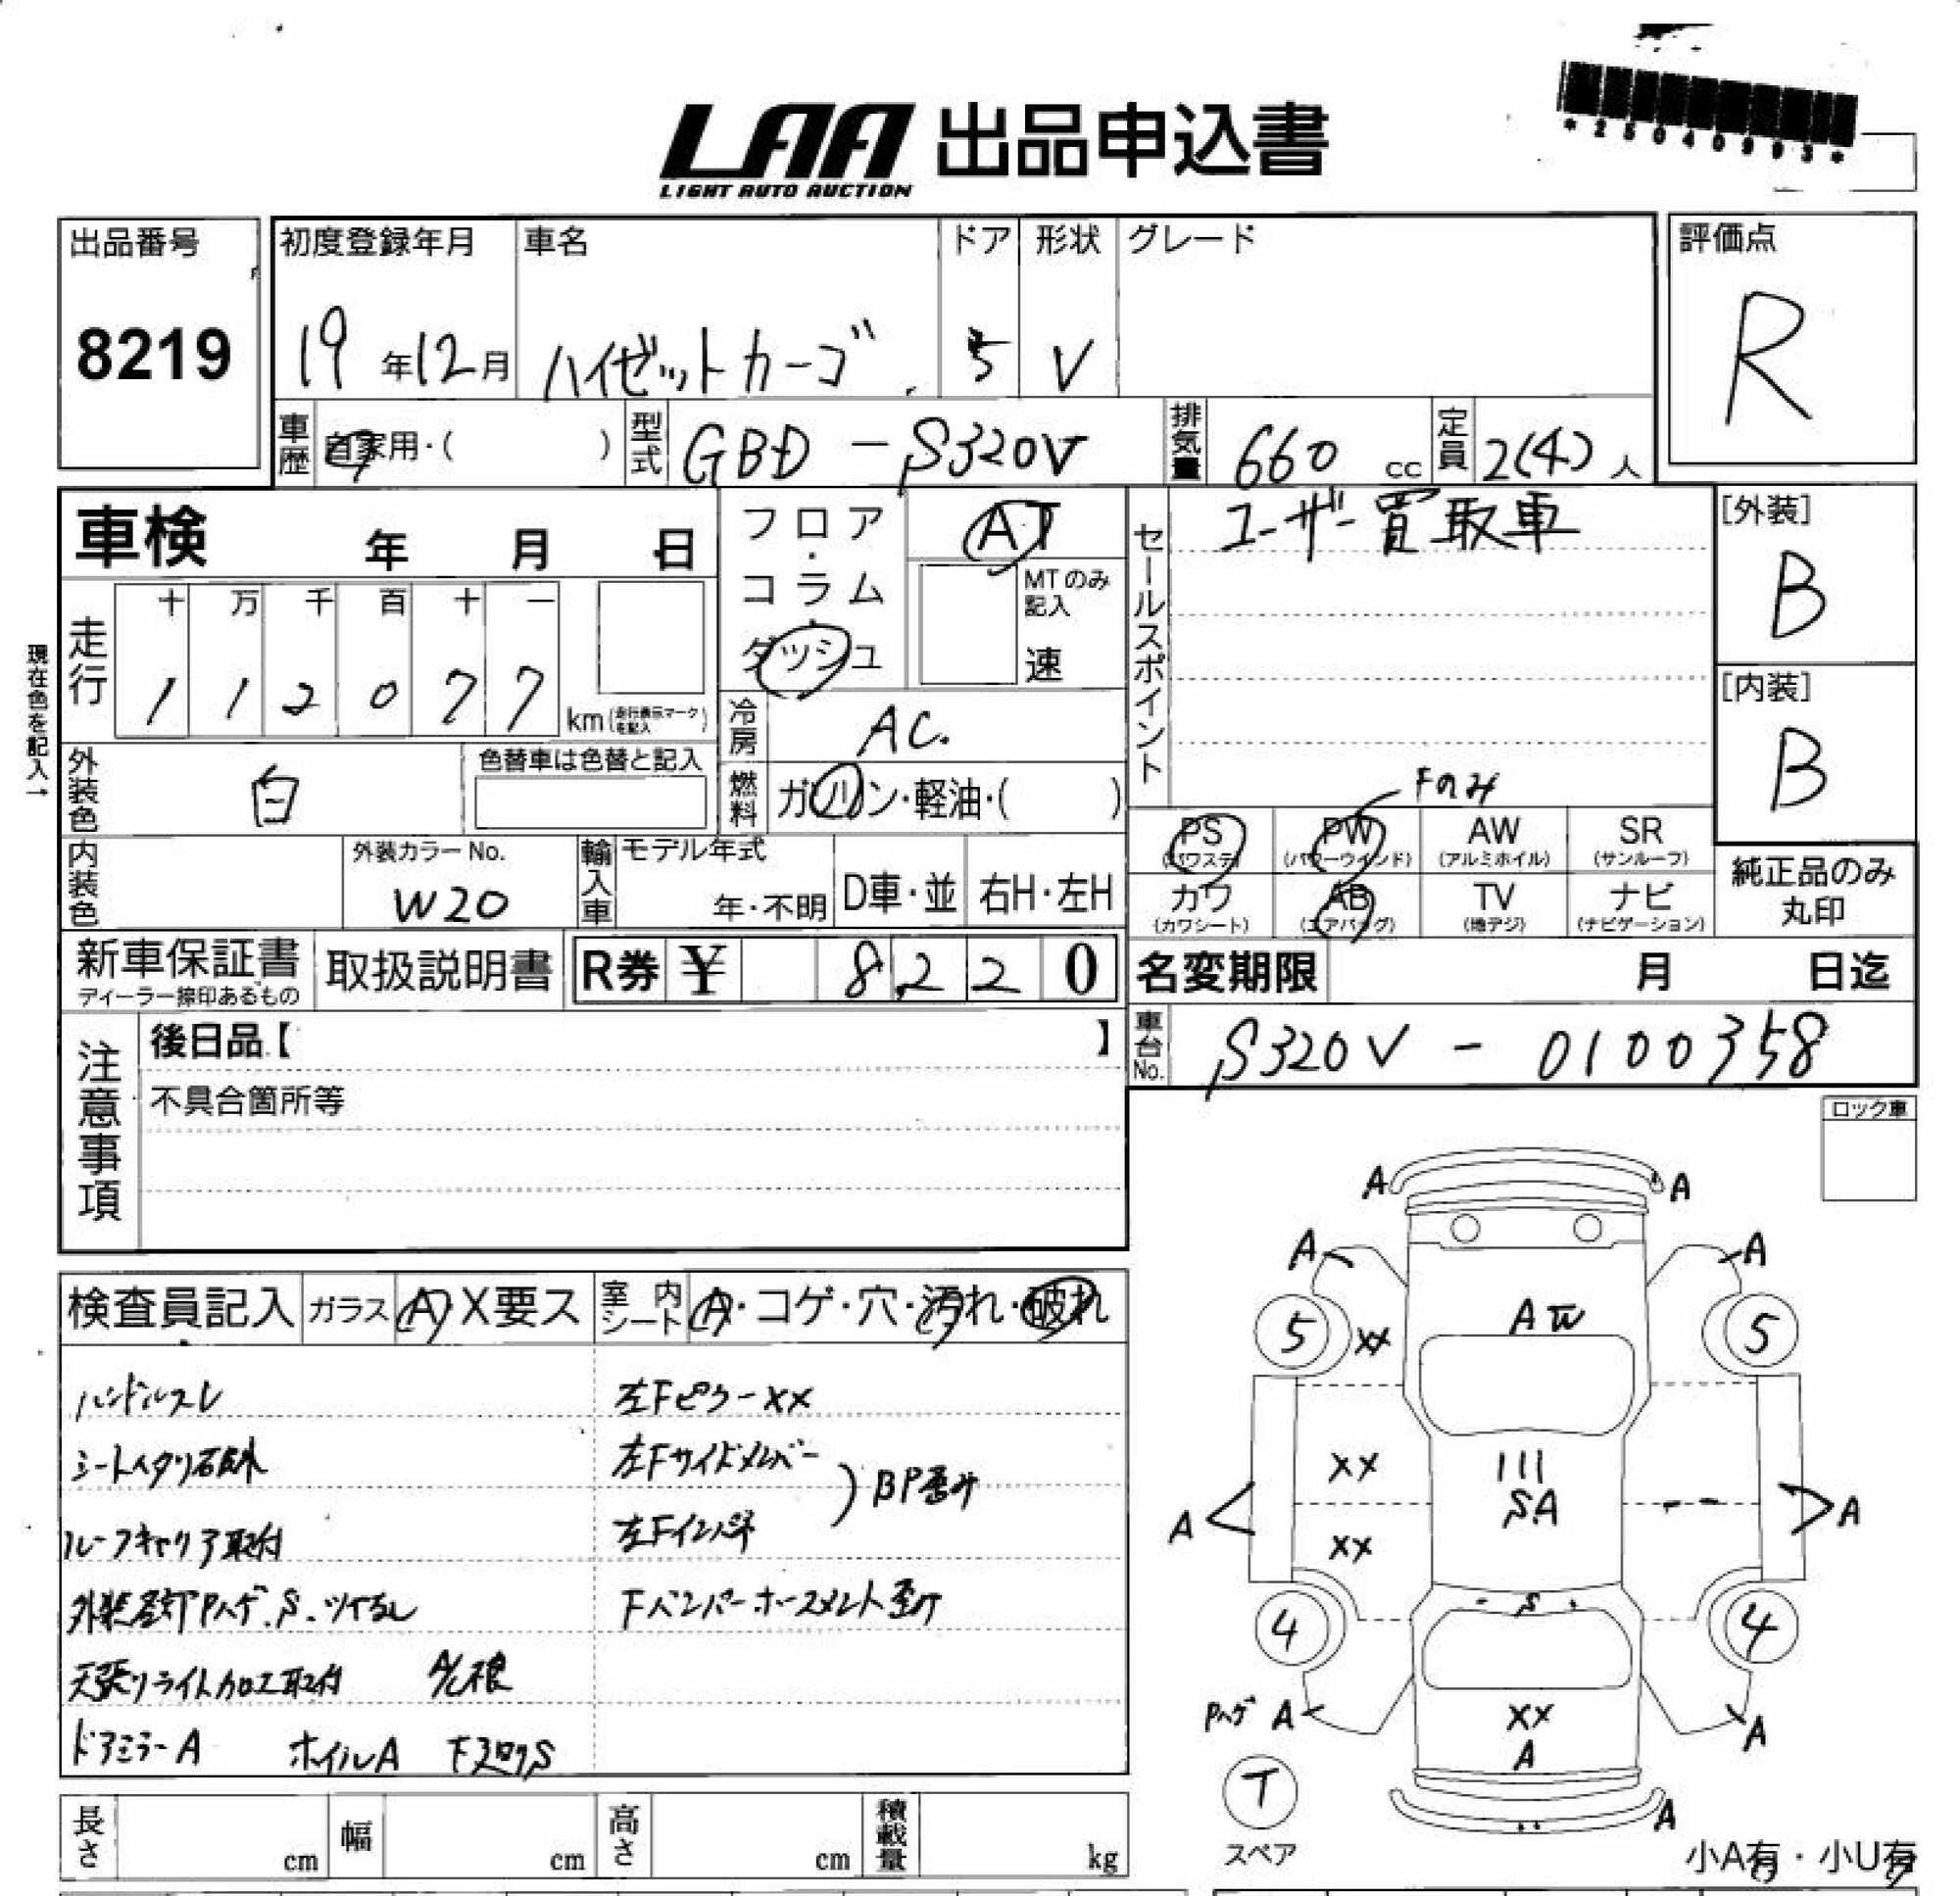 *25040993*
LAA 出品申込書
LIGHT AUTO AUCTION
出品番号
8219
初度登録年月
19年12月
車名
ハイゼットカーゴ
ドア
5
形状
V
グレード
評価点
R
車歴
自家用・( )
型式
GBD-S320V
排気量
660 cc
定員
2(4)人
車検 年 月 日
フロア・コラム・ダッシュ
AT
MTのみ記入
速
セールスポイント
ユーザー買取車
[外装]
B
[内装]
B
現在色を記入→
走行
十 万 千 百 十 一
1 1 2 0 7 7
km(走行表示マークを記入)
冷房
AC.
外装色
白
色替車は色替と記入
燃料
ガソリン・軽油・( )
Fのみ
PS (パワステ)
PW (パワーウィンド)
AW (アルミホイル)
SR (サンルーフ)
カワ (カワシート)
AB (エアバッグ)
TV (地デジ)
ナビ (ナビゲーション)
純正品のみ丸印
内装色
外装カラーNo.
W20
輸入車
モデル年式
年・不明
D車・並
右H・左H
新車保証書
ディーラー捺印あるもの
取扱説明書
R券 ¥ 8,220
名変期限 月 日迄
車台No.
S320V-0100358
注意事項
後日品【 】
不具合箇所等
ロック車
検査員記入
ガラス A・X要ス
室内シート A・コゲ・穴・汚れ・破れ
ハンドルスレ
左FピラーXX
左Fサイドメンバー
左Fインパネ
BP歪み
ルーフキャリア取付
Fバンパーホースメント歪み
天張りライト加工取付
ドアミラーA ホイルA
A A
A A
5 XX 5
AW
XX
111
SA
A A
XX
S
4 4
Pハゲ A
XX
A
A
T
スペア
A
小A有・小U有
長さ cm
幅 cm
高さ cm
積載量 kg